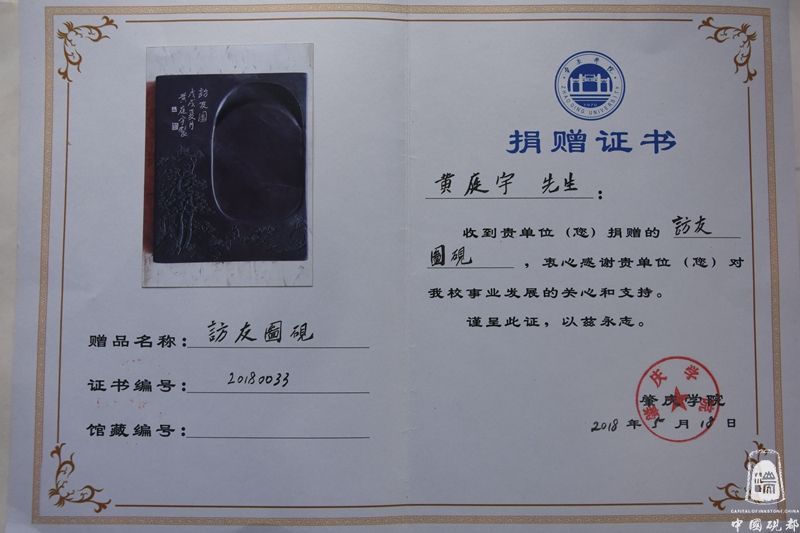 訪友圖
戊戌夏月
黄庭宇製
赠品名称：訪友圖硯
证书编号：20180033
馆藏编号：
肇庆学院
ZHAOQING UNIVERSITY
1970
捐赠证书
黄庭宇 先生：
收到贵单位（您）捐赠的 訪友
圖硯 ，衷心感谢贵单位（您）对
我校事业发展的关心和支持。
谨呈此证，以兹永志。
肇庆学院
肇庆学院
2018 年 5 月 18 日
CAPITAL OF INKSTONE, CHINA
中國硯都